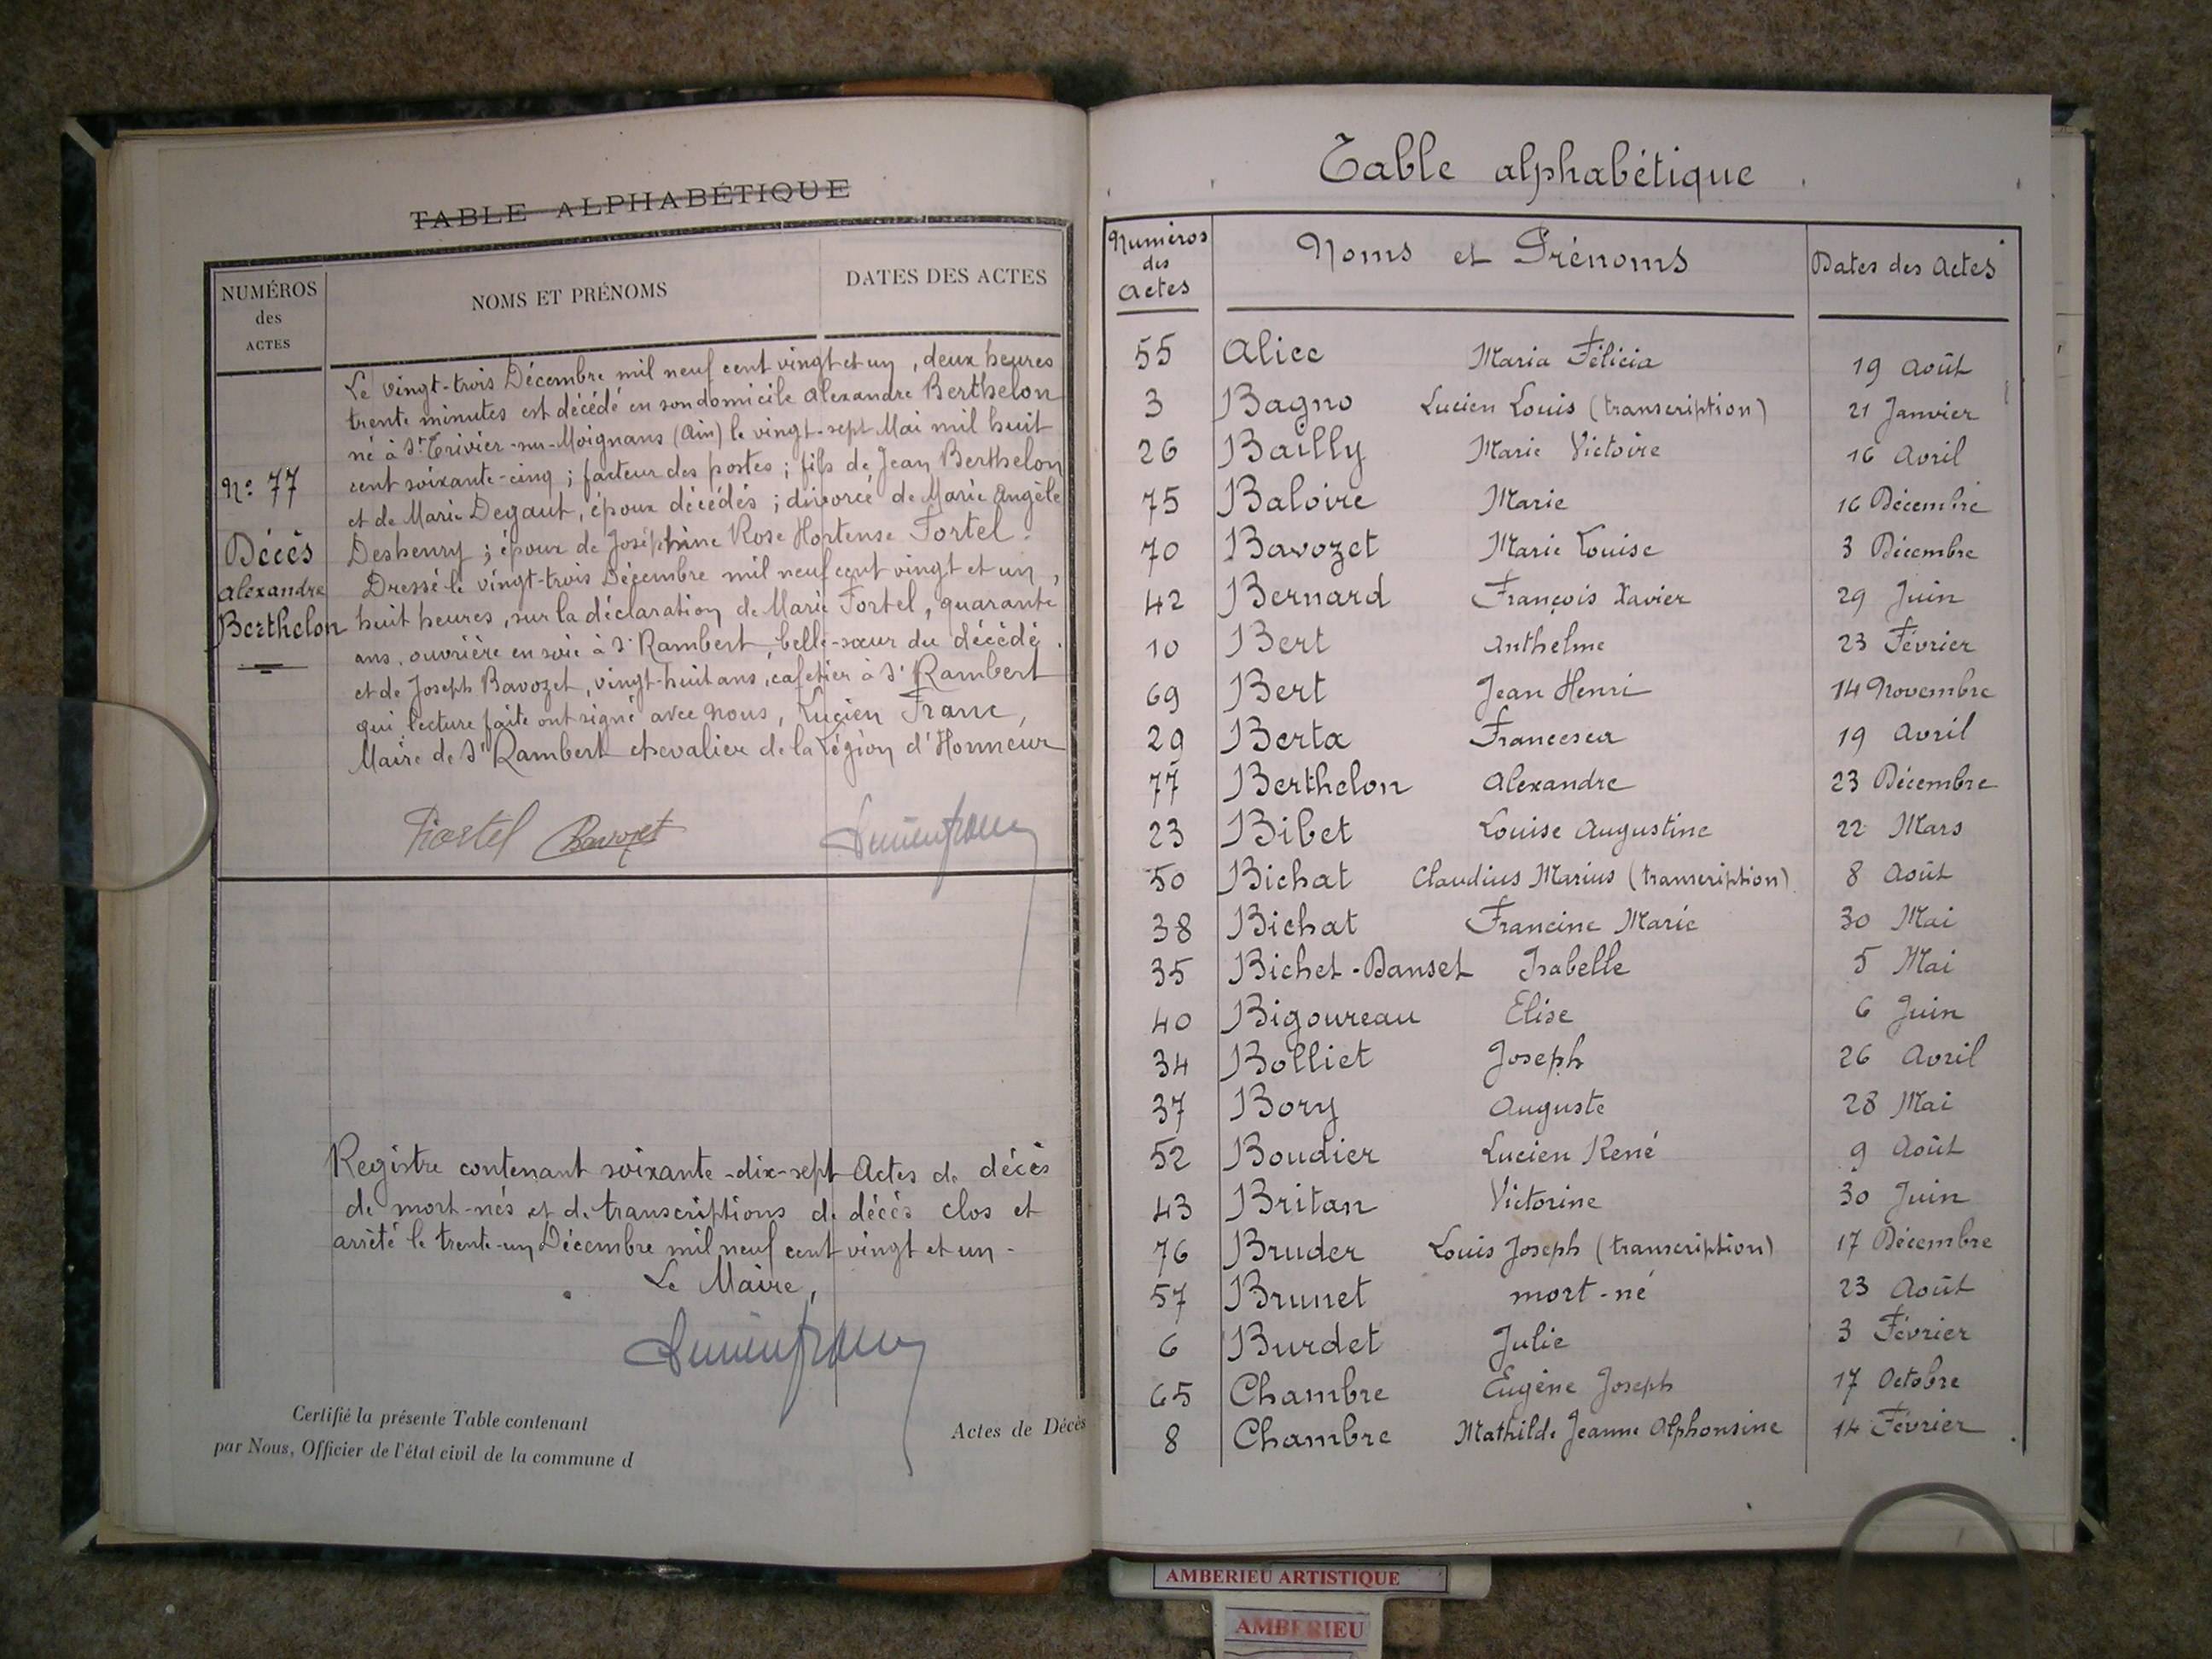 TABLE ALPHABÉTIQUE
NUMÉROS
des
ACTES
NOMS ET PRÉNOMS
DATES DES ACTES
N° 77
Décès
Alexandre
Berthelon
Le vingt-trois Décembre mil neuf cent vingt et un, deux heures
trente minutes est décédé en son domicile Alexandre Berthelon
né à St Trivier-sur-Moignans (Ain) le vingt-sept Mai mil huit
cent soixante-cinq ; facteur des postes ; fils de Jean Berthelon
et de Marie Degaut, époux décédés ; divorcé de Marie Angèle
Deshenry ; époux de Joséphine Rose Hortense Fortel.
Dressé le vingt-trois Décembre mil neuf cent vingt et un,
huit heures, sur la déclaration de Marie Fortel, quarante
ans, ouvrière en soie à St Rambert, belle-sœur du décédé
et de Joseph Bavozet, vingt-huit ans, cafetier à St Rambert
qui, lecture faite ont signé avec Nous, Lucien Franc,
Maire de St Rambert chevalier de la Légion d'Honneur
Bavozet
Registre contenant soixante-dix-sept Actes de décès
de mort-nés et de transcriptions de décès clos et
arrêté le trente-un Décembre mil neuf cent vingt et un -
Le Maire,
Certifié la présente Table contenant
Actes de Décès
par Nous, Officier de l'état civil de la commune d
Table alphabétique
Numéros
des
Actes
Noms et Prénoms
Dates des Actes
55 Alice Maria Félicia 19 Août
3 Bagno Lucien Louis (transcription) 21 Janvier
26 Bailly Marie Victoire 16 Avril
75 Baloire Marie 16 Décembre
70 Bavozet Marie Louise 3 Décembre
42 Bernard François Xavier 29 Juin
10 Bert Anthelme 23 Février
69 Bert Jean Henri 14 Novembre
29 Berta Francesca 19 Avril
77 Berthelon Alexandre 23 Décembre
23 Bibet Louise Augustine 22 Mars
50 Bichat Claudius Marius (transcription) 8 Août
38 Bichat Francine Marie 30 Mai
35 Bichet-Danset Isabelle 5 Mai
40 Bigoureau Elise 6 Juin
34 Bolliet Joseph 26 Avril
37 Bory Auguste 28 Mai
52 Boudier Lucien René 9 Août
43 Britan Victorine 30 Juin
76 Bruder Louis Joseph (transcription) 17 Décembre
57 Brunet mort-né 23 Août
6 Burdet Julie 3 Février
65 Chambre Eugène Joseph 17 Octobre
8 Chambre Mathilde Jeanne Alphonsine 14 Février
AMBERIEU ARTISTIQUE
AMBERIEU